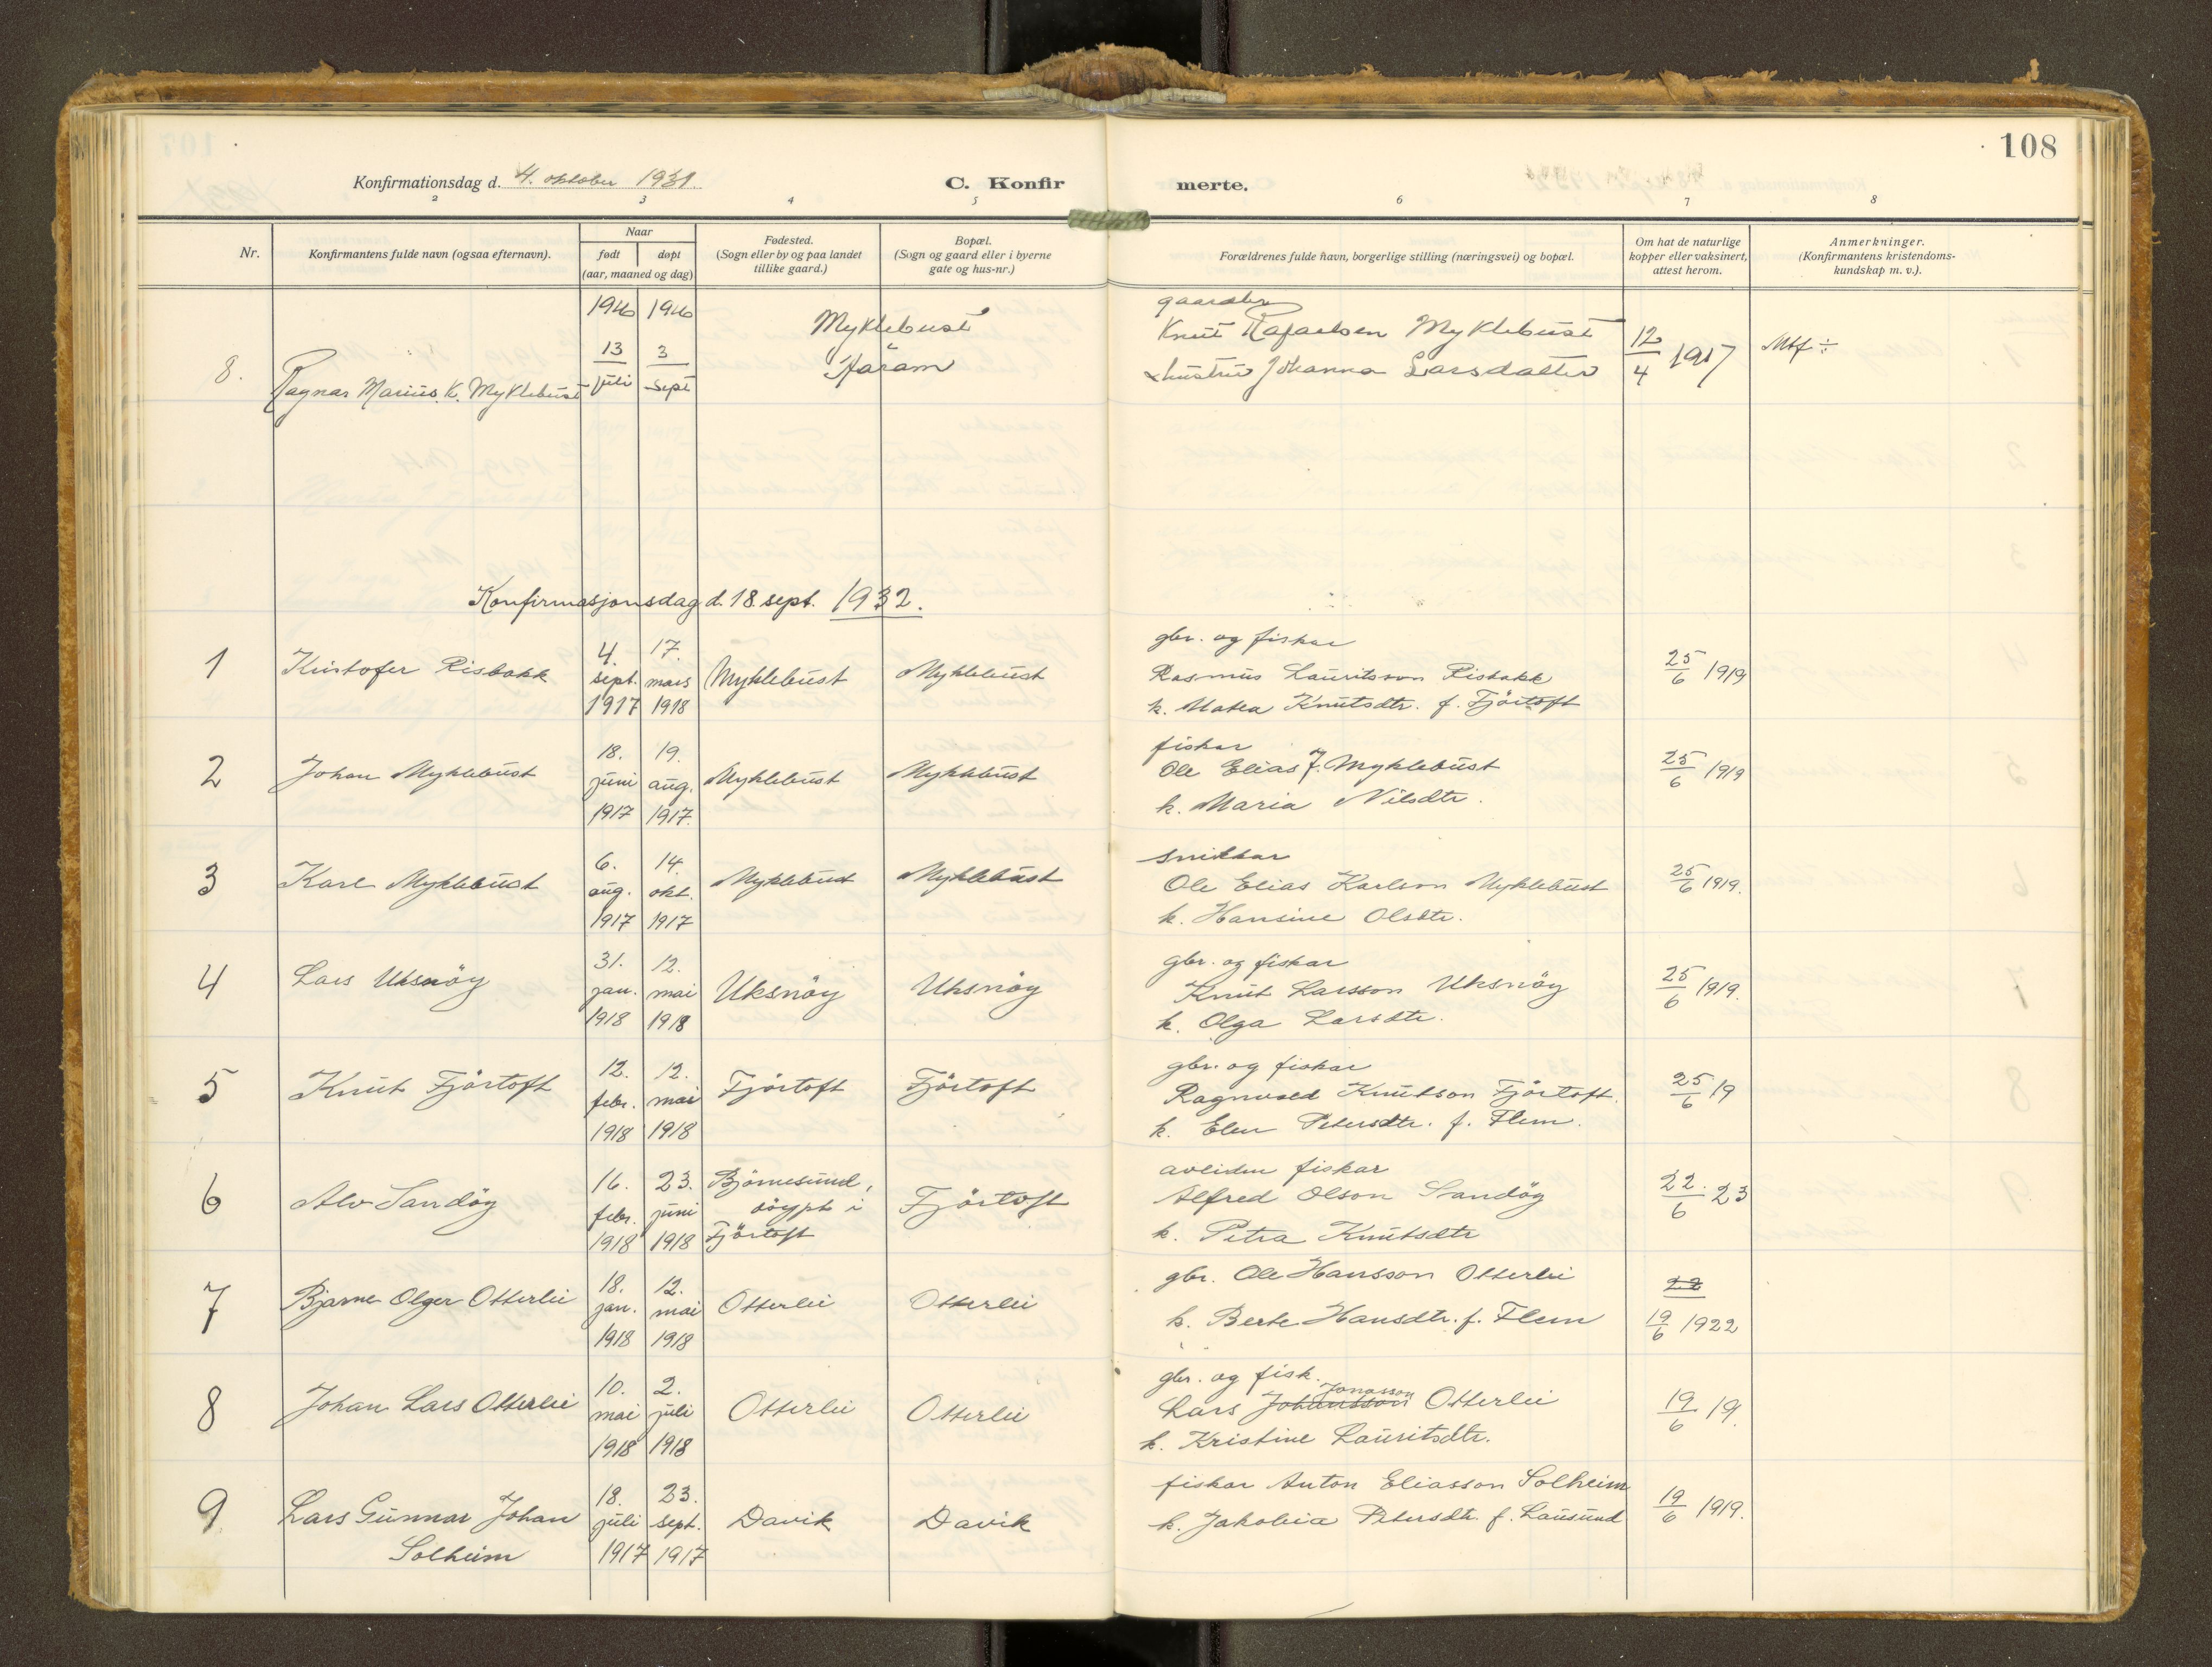 108
Konfirmationsdag d. 4. oktober 1931.
C. Konfirmerte.
2 3 4 5 6 7 8
Nr.
Konfirmantens fulde navn (ogsaa efternavn).
Naar
født
døpt
(aar, maaned og dag)
Fødested.
(Sogn eller by og paa landet
tillike gaard.)
Bopæl.
(Sogn og gaard eller i byerne
gate og hus-nr.)
Forældrenes fulde navn, borgerlige stilling (næringsvei) og bopæl.
Om hat de naturlige
kopper eller vaksinert,
attest herom.
Anmerkninger.
(Konfirmantens kristendoms-
kundskap m. v.).
8.
Ragnar Marius K. Myklebust
1916
13
juli
1916
3
sept
Myklebust
Haram
gaardbr
Knut Rafaelsen Myklebust
& hustru Johanna Larsdatter
12/4 1917
Mtf ÷
Konfirmasjonsdag d. 18. sept. 1932.
1
Kristofer Risbakk
4.
sept.
1917
17.
mars
1918
Myklebust
Myklebust
gbr. og fiskar
Rasmus Lauritsson Risbakk
k. Matea Knutsdtr. f. Fjörtoft
25/6 1919
2
Johan Myklebust
18.
juni
1917
19.
aug.
1917.
Myklebust
Myklebust
fiskar
Ole Elias J. Myklebust
k. Maria Nilsdtr.
25/6 1919
3
Kare Myklebust
6.
aug.
1917
14.
okt.
1917
Myklebust
Myklebust
snikkar
Ole Elias Karlson Myklebust
k. Hansine Olsdtr.
25/6 1919.
4
Lars Uksnöy
31.
jan.
1918
12.
mai
1918
Uksnöy
Uksnöy
gbr. og fiskar
Knut Larsson Uksnöy
k. Olga Larsdtr.
25/6 1919.
5
Knut Fjörtoft
12.
febr.
1918
12.
mai
1918
Fjörtoft
Fjörtoft
gbr. og fiskar
Ragnvald Knutson Fjörtoft.
k. Elen Petersdtr. f. Flem.
25/6 19
6
Alv Sandöy
16.
febr.
1918
23.
juni
1918
Björnesund,
döypt i
Fjörtoft
Fjörtoft
avliden fiskar
Alfred Olson Sandöy
k. Petra Knutsdtr
22./6 23
7
Bjarne Olger Otterlei
18.
jan.
1918
12.
mai
1918
Otterlei
Otterlei
gbr. Ole Hansson Otterlei
k. Berte Hansdtr. f. Flem
22
19/6 1922
8
Johan Lars Otterlei
10.
mai
1918
2.
juli
1918
Otterlei
Otterlei
gbr. og fisk.
Jonasson
Lars Johansson Otterlei
k. Kristine Lauritsdtr.
19/6 19.
9
Lars Gunnar Johan
Solheim
18.
juli
1917
23.
sept.
1917
Davik
Davik
fiskar Anton Eliasson Solheim
k. Jakobia Petersdtr. f. Lausund
19/6 1919.